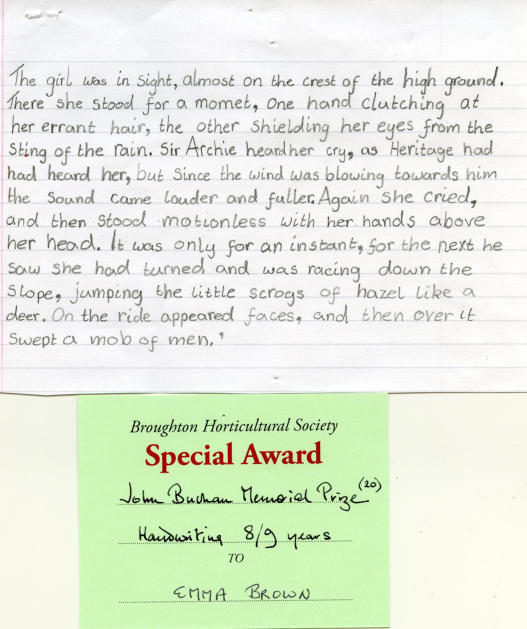 The girl was in sight, almost on the crest of the high ground.
There she stood for a momet, one hand clutching at
her errant hair, the other shielding her eyes from the
sting of the rain. Sir Archie heard her cry, as Heritage had
had heard her, but since the wind was blowing towards him
the sound came louder and fuller. Again she cried,
and then stood motionless with her hands above
her head. It was only for an instant, for the next he
saw she had turned and was racing down the
slope, jumping the little scrogs of hazel like a
deer. On the ride appeared faces, and then over it
swept a mob of men.'
Broughton Horticultural Society
Special Award
John Buchan Memorial Prize (20)
Handwriting 8/9 years
TO
EMMA BROWN